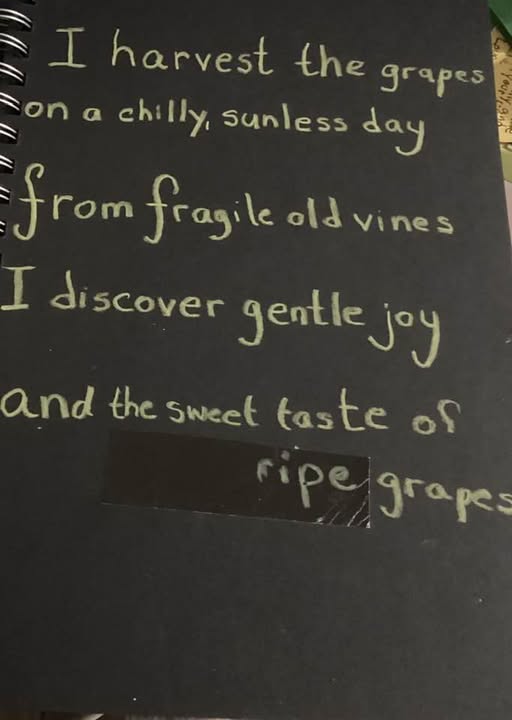 I harvest the grapes
on a chilly, sunless day
from fragile old vines
I discover gentle joy
and the sweet taste of
ripe grapes